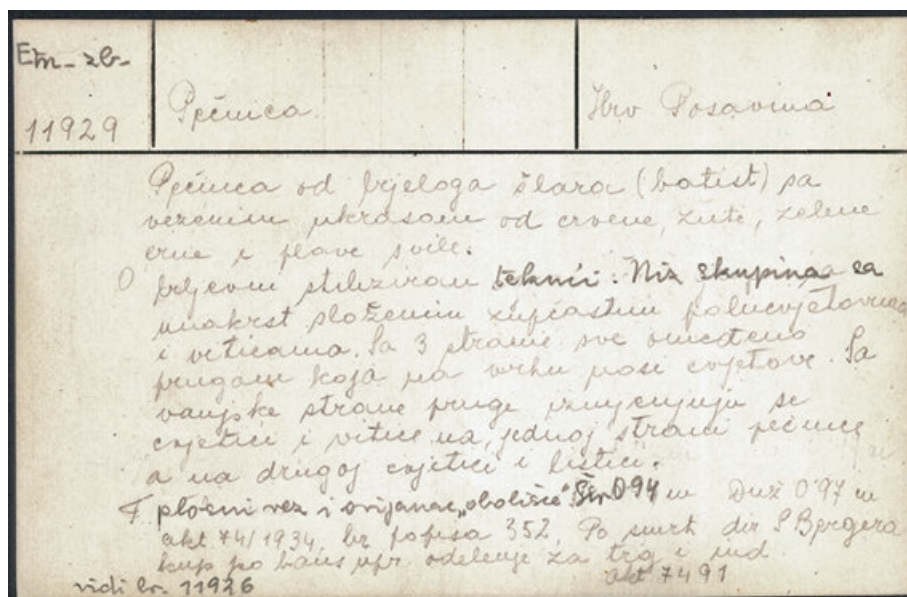 Etn-zb-
11929
Pećnica
Hrv Posavina
Pećnica od bijeloga šlara (batist) sa
vezenim ukrasom od crvene, žute, zelene
crne i plave svile.
O biljevni stilizirani teknici. Niz skupina sa
unakrst složenim zupčastim polucvjetovima
i viticama. Sa 3 strane sve omeđeno
prugom koja na vrhu nosi cvjetove. Sa
vanjske strane pruge izmjenjuju se
cvjetići i vitice na jednoj strani pećnice
a na drugoj cvjetići i listići.
T pločni vez i ovijanac „obolišce" Šir 0'94 m Duž 0'97 m
akt. 74/1934, br popisa 352, Po smrti dir S Bergera
kup po bans upr odelenje za trg i ind
akt 7491
vidi br. 11926